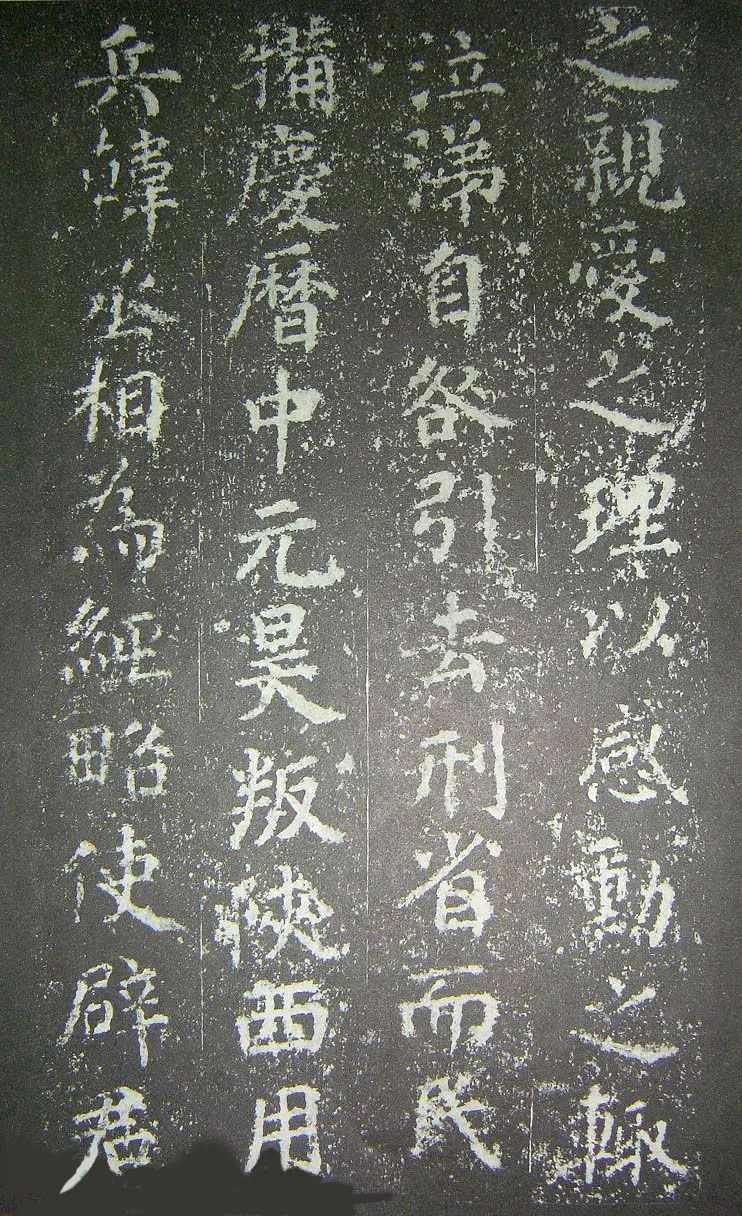 之親愛之理以感動之輙
泣涕自咎引去刑省而民
犕慶曆中元昊叛陝西用
兵韓丞相為經略使辟君